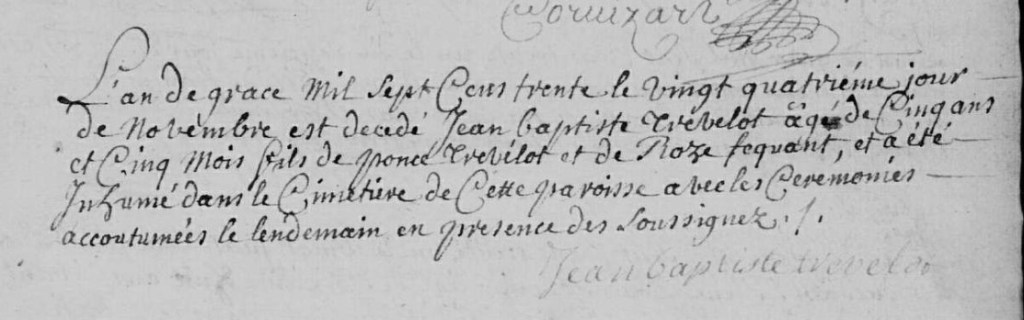 L'an de grace Mil Sept Cens trente le vingt quatriéme jour
de Novembre est decedé Jean baptiste Trevelot âgé de Cinq ans
et Cinq Mois fils de ponce Trevelot et de Roze fequant, et a été
Inhumé dans le Cimetiére de Cette paroisse avec les Ceremonies
accoutumées le lendemain en presence des Soussignez ./.
Jean baptiste trevelot